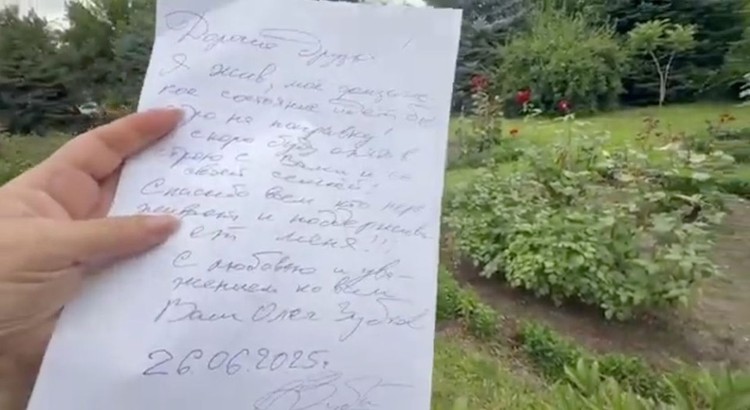 Дорогие друзья!
Я жив, мое физичес
кое состояние идёт бы
стро на поправку!
И скоро буду опять в
строю с Вами и со
своей семьёй!
Спасибо всем кто пере
живает и поддержива
ет меня!!!
С любовью и ува-
жением ко всем
Ваш Олег Зубков
26.06.2025г.